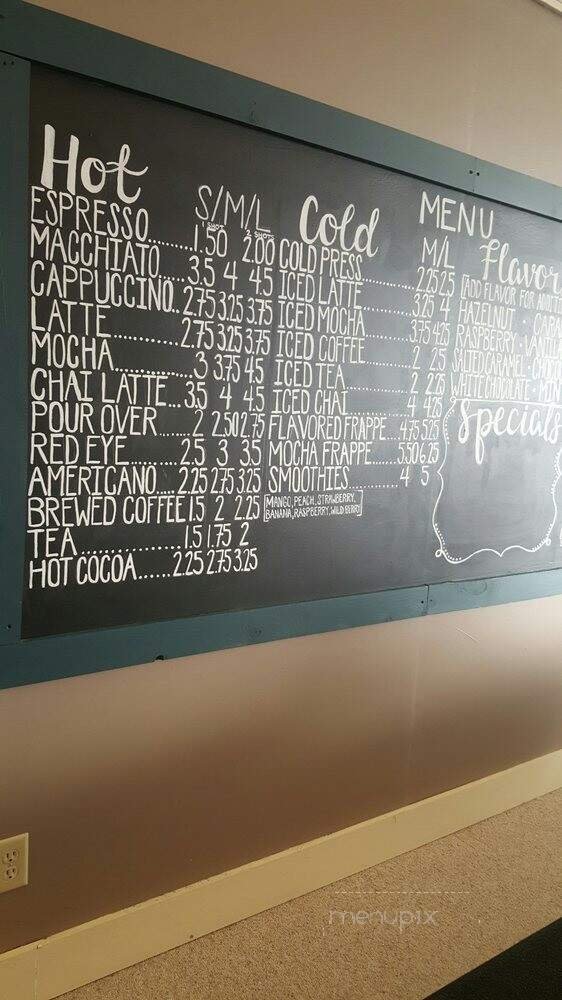 MENU
Hot
S/M/L
1 SHOT 2 SHOTS
ESPRESSO......1.50 2.00
MACCHIATO....3.5 4 4.5
CAPPUCCINO..2.75 3.25 3.75
LATTE..........2.75 3.25 3.75
MOCHA..........3 3.75 4.5
CHAI LATTE...3.5 4 4.5
POUR OVER.....2 2.50 2.75
RED EYE........2.5 3 3.5
AMERICANO....2.25 2.75 3.25
BREWED COFFEE 1.5 2 2.25
TEA...............1.5 1.75 2
HOT COCOA......2.25 2.75 3.25
Cold
M/L
COLD PRESS........2.25 2.5
ICED LATTE..........3.25 4
ICED MOCHA.........3.75 4.25
ICED COFFEE.........2 2.5
ICED TEA..............2 2.25
ICED CHAI............4 4.25
FLAVORED FRAPPE..4.75 5.25
MOCHA FRAPPE.....5.50 6.25
SMOOTHIES..........4 5
[MANGO, PEACH, STRAWBERRY,
BANANA, RASPBERRY, WILD BERRY]
Flavor
[ADD FLAVOR FOR
HAZELNUT · CARA
RASPBERRY · VANIL
SALTED CARAMEL · CHOCO
WHITE CHOCOLATE · MIN
Specials
menupix